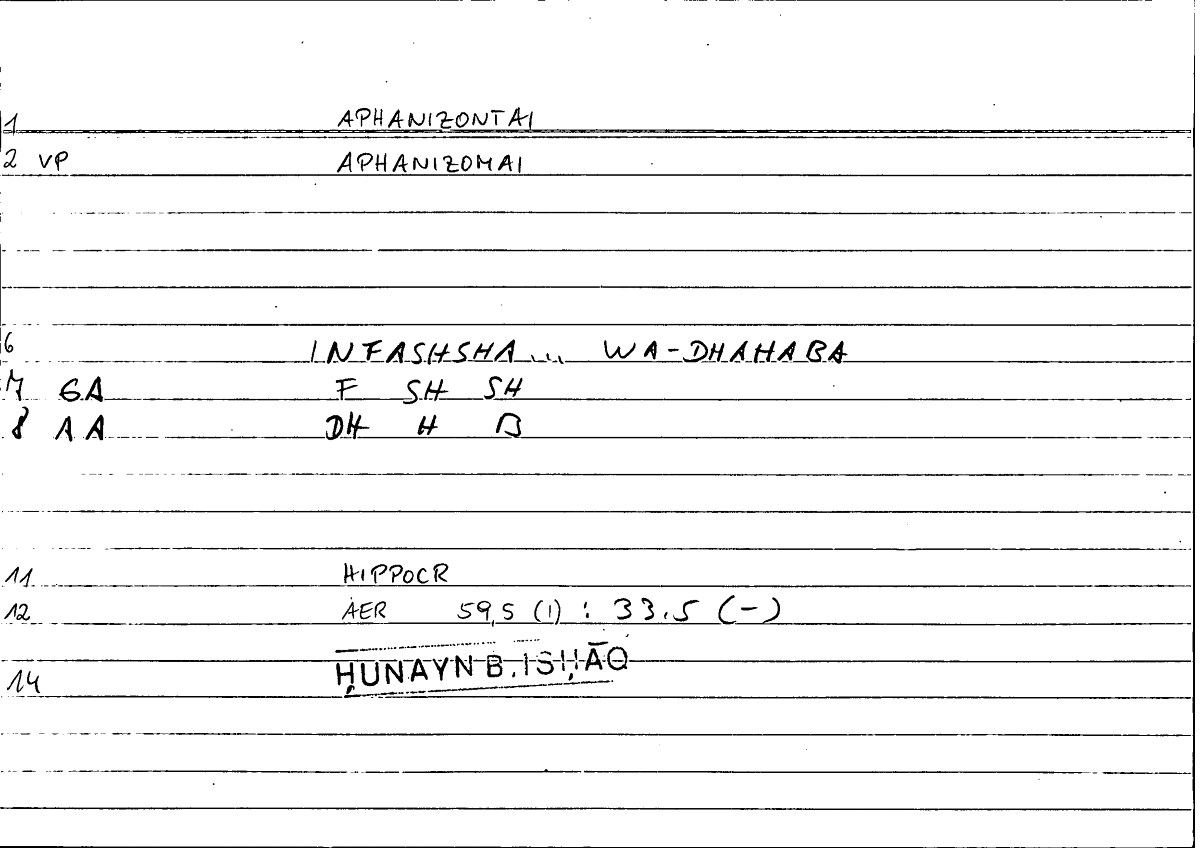 1 APHANIZONTAI
2 VP APHANIZOMAI
6 INFASHSHA... WA-DHAHABA
7 GA F SH SH
8 AA DH H B
11 HIPPOCR
12 AER 59,5 (1) : 33.5 (-)
14 ḤUNAYN B. ISḤĀQ